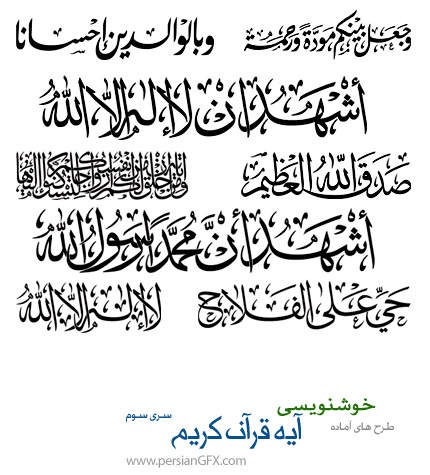 وجعل بينكم مودة ورحمة
وبالوالدين احسانا
أشهد ان لا إله إلا الله
صدق الله العظيم
ومن آياته أن خلق لكم من أنفسكم أزواجا لتسكنوا إليها
أشهد أن محمدا رسول الله
حي على الفلاح
لا إله إلا الله
خوشنویسی
طرح های آماده
سری سوم
آیه قرآن کریم
www.persianGFX.com